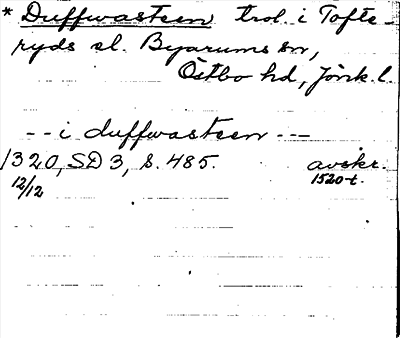 * Duffwasteen trol. i Tofte-
ryds sl. Byarums sn,
Östbo hd, Jönk. l.
-- i duffwasteen ---
1320, SD 3, s. 485. avskr.
12/12 1520-t.